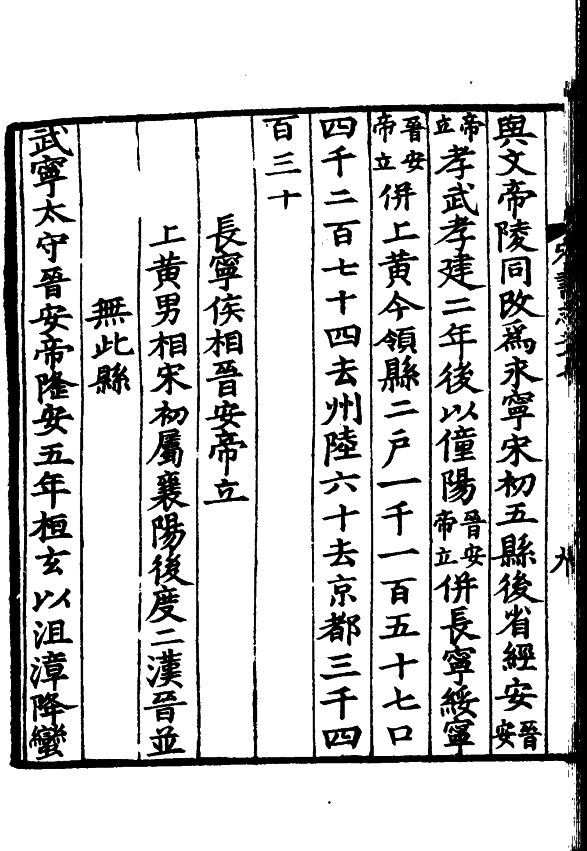 與文帝陵同改爲永寧宋初五縣後省經安晉安
帝立孝武孝建二年後以僮陽晉安帝立併長寧綏寧
晉安帝立併上黃今領縣二戶一千一百五十七口
四千二百七十四去州陸六十去京都三千四
百三十
長寧侯相晉安帝立
上黃男相宋初屬襄陽後度二漢晉並
無此縣
武寧太守晉安帝隆安五年桓玄以沮漳降蠻